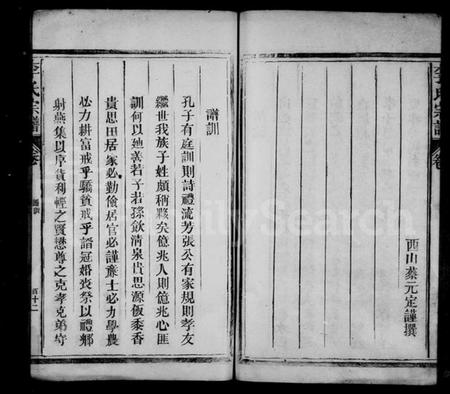 李氏宗譜
卷
西山蔡元定謹撰
譜訓
孔子有庭訓則詩禮流芳張公有家規則孝友
繼世我族子姓頗稱夥矣億兆人則億兆心匪
訓何以廸善若子若孫飲清泉貴思源飯黍香
貴思田居家必勤儉居官必謹廉士必力學農
必力耕富戒乎驕貧戒乎諂冠婚喪祭以禮鄉
射燕集以序貨利輕之賢懋尊之克孝克弟守
李氏宗譜
卷
譜訓
百十二